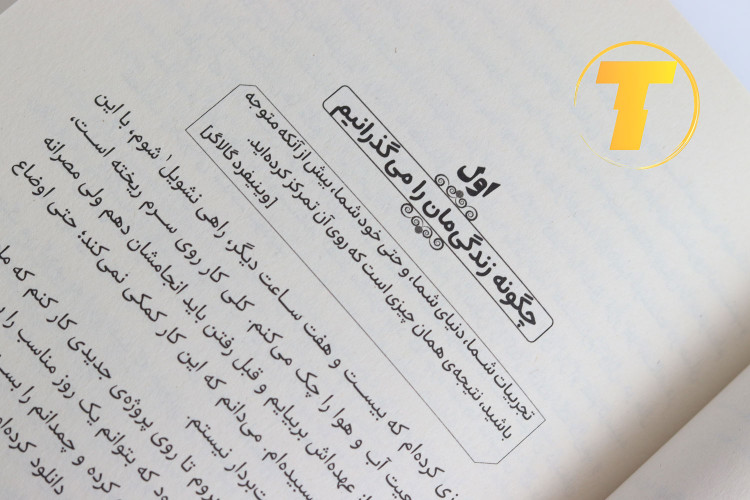 اول
چگونه زندگی‌مان را می‌گذرانیم
تجربیات شما، دنیای شما، و حتی خود شما، بیش از آنکه متوجه
باشید، نتیجه‌ی همان چیزی است که روی آن تمرکز کرده‌اید.
[وینیفرد گالاگر]
زی کرده‌ام که بیست و هفت ساعت دیگر، راهی نشویل۱ شوم، با این
عیت آب و هوا را چک می‌کنم. کلی کار روی سرم ریخته است،
از عهده‌اش بربیایم و قبل رفتن باید انجامشان دهم ولی مصرانه
سبیده‌ام. می‌دانم که این کار کمکی نمی‌کند؛ حتی اوضاع
ت‌بردار نیستم.
روم تا روی پروژه‌ی جدیدی کار کنم که ما
ود که بتوانم یک روز مناسب را
کرده و چمدانم را
دانلود کرده‌ام
T